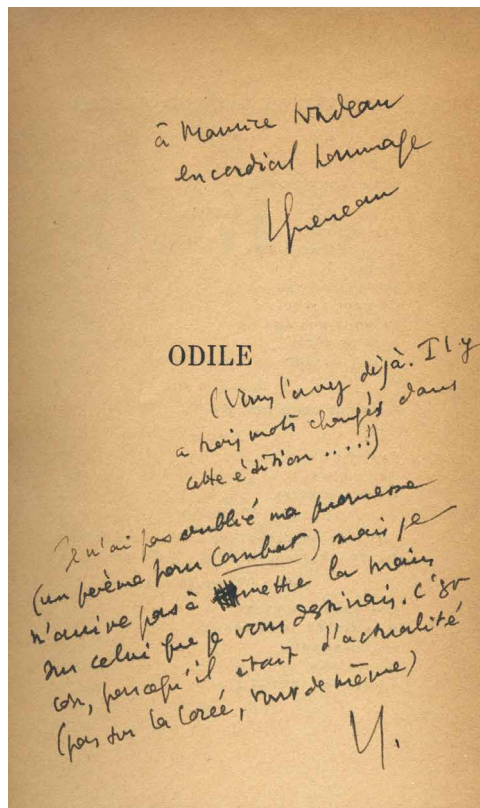 à Maurice Nadeau
en cordial hommage
Queneau
ODILE
(Vous l'avez déjà. Il y
a trois mots changés dans
cette édition .....!)
Je n'ai pas oublié ma promesse
(un poème pour Combat) mais je
n'arrive pas à mettre la main
sur celui que je vous destinais. C'est
con, parcequ'il était d'actualité
(pas sur la Corée, tout de même)